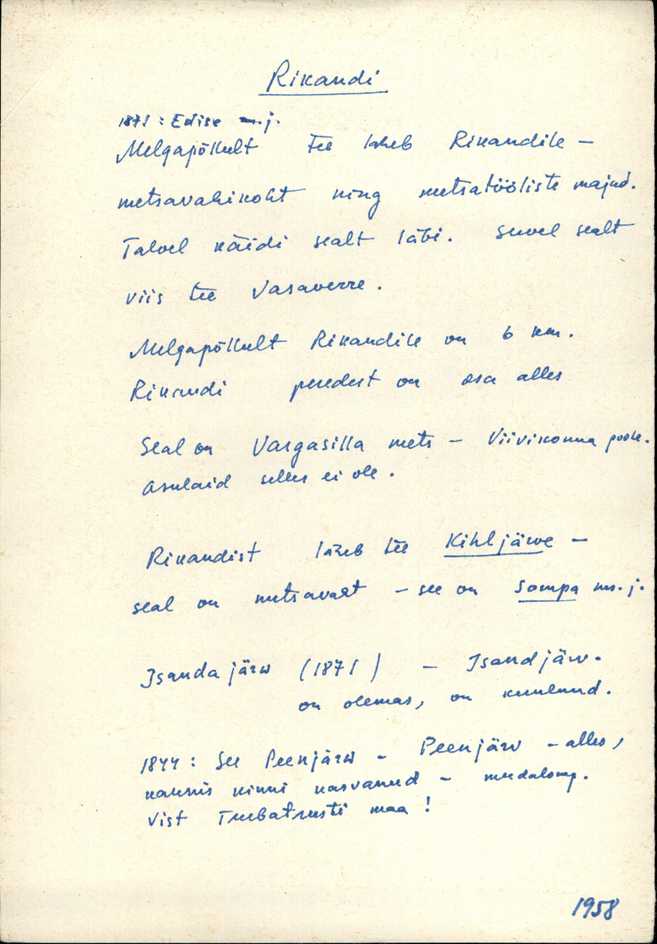 Rikandi
1871: Edise m.j.
Melgapõllult tee läheb Rikandile –
metsavahikoht ning metsatööliste majad.
Talvel käidi sealt läbi. Suvel sealt
viis tee Vasaverre.
Melgapõllult Rikandile on 6 km.
Rikandi peredest on osa alles
Seal on Vargasilla mets – Viivikonna poole.
Asulaid selles ei ole.
Rikandist läheb tee Kihljärve –
seal on metsavaht – see on Sompa ms. j.
Isanda järw (1871) – Isandjärv.
on olemas, on kuulnud.
1844: See Peenjärw – Peenjärv – alles,
kaunis kinni kasvanud – mudalomp.
Vist Turbatrusti maa!
1958